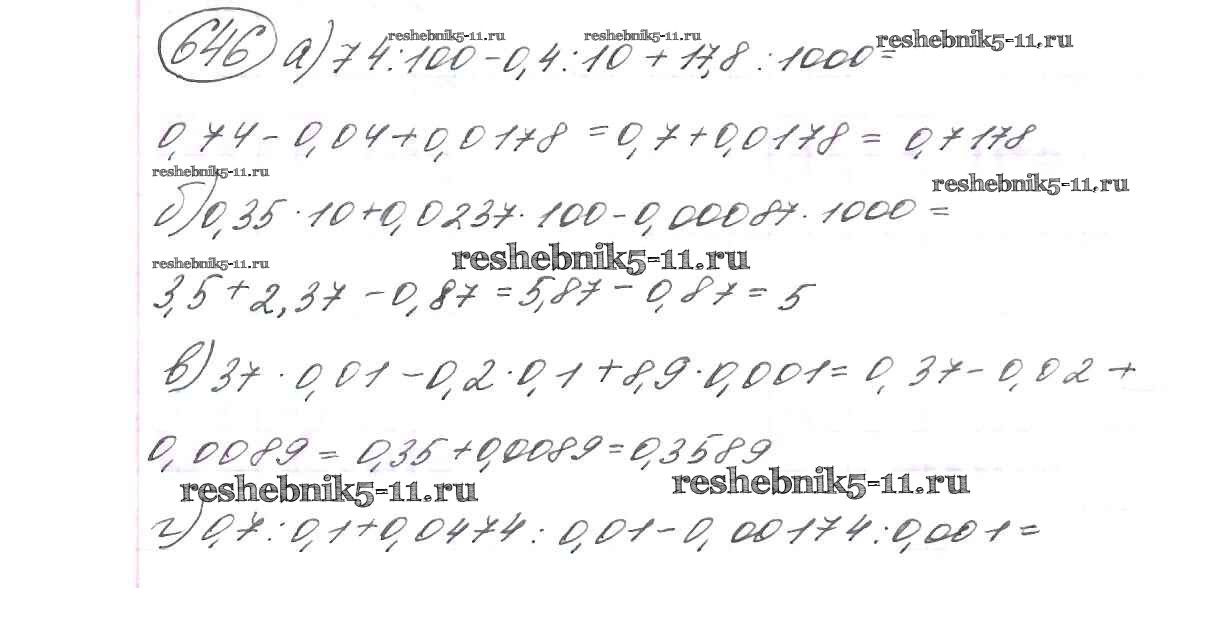 646 а) 74:100-0,4:10+17,8:1000=
reshebnik5-11.ru
reshebnik5-11.ru
reshebnik5-11.ru
0,74-0,04+0,0178=0,7+0,0178=0,7178
reshebnik5-11.ru
reshebnik5-11.ru
б) 0,35·10+0,0237·100-0,00087·1000=
reshebnik5-11.ru
reshebnik5-11.ru
3,5+2,37-0,87=5,87-0,87=5
в) 37·0,01-0,2·0,1+8,9·0,001=0,37-0,02+
0,0089=0,35+0,0089=0,3589
reshebnik5-11.ru
reshebnik5-11.ru
г) 0,7:0,1+0,0474:0,01-0,00174:0,001=